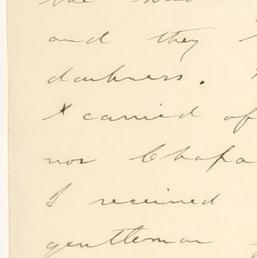 and they
darkness.
carried of
nor Chapa
I received
gentleman